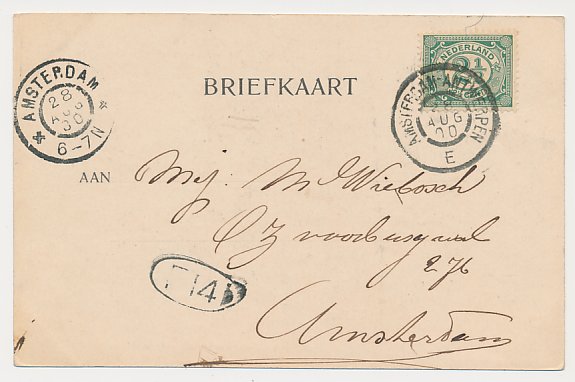 NEDERLAND
2½
AMSTERDAM-ANTWERPEN
AUG
00
E
AMSTERDAM
28
AUG
00
6-7N
BRIEFKAART
AAN
Mej: M Wiebosch
O Z voorburgwal
276
Amsterdam
F14